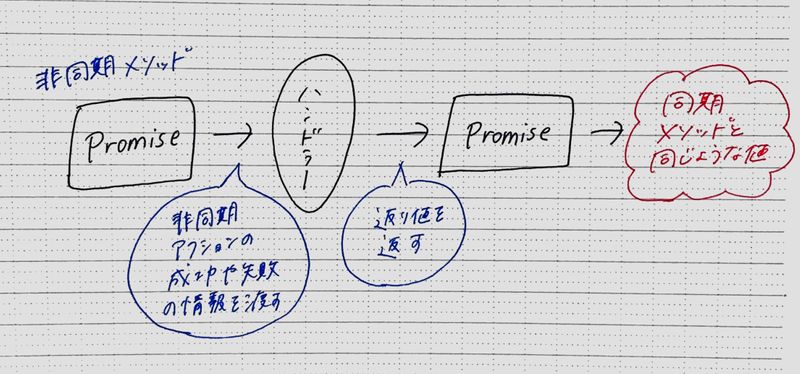 非同期メソッド
Promise
ハンドラー
Promise
同期
メソッドと
同じような値
非同期
アクションの
成功や失敗
の情報を渡す
返り値を
返す